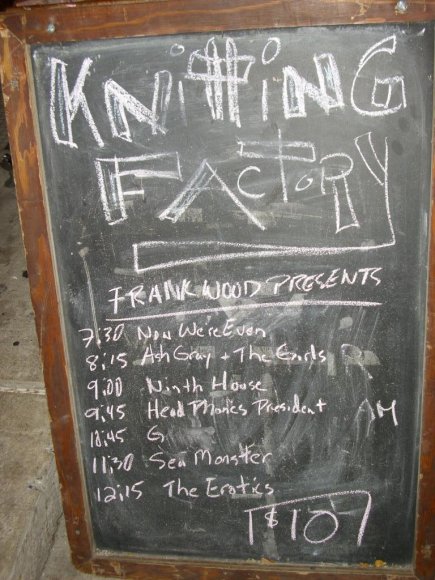 KNiTTiNG
FACTORY
FRANK WOOD PRESENTS
7:30 Now We're Even
8:15 Ash Gray + The Girls
9:00 Ninth House
9:45 Head Phones President
10:45 G
11:30 Sea Monster
12:15 The Erotics
$10